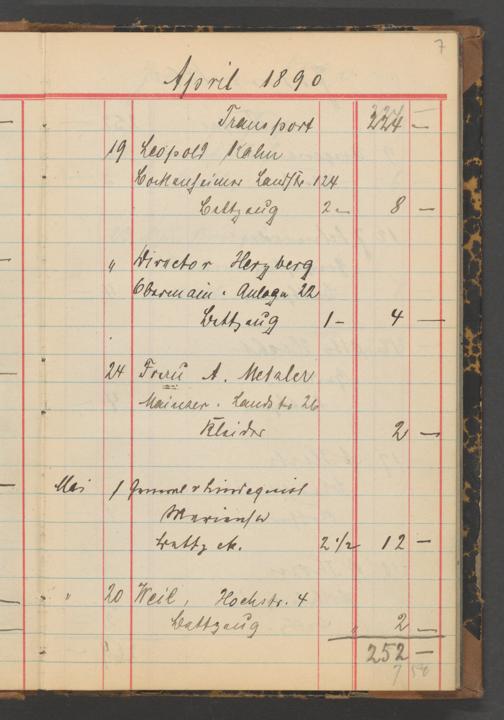 7
April 1890
Transport 224 —
19 Leopold Kahn
Bockenheimer Landstr. 124
Bettzeug 2 — 8 —
" Director Herzberg
Obermain-Anlage 22
Bettzeug 1 — 4 —
24 Frau A. Metzler
Mainzer-Landstr. 26
Kleider 2 —
Mai 1 General v Lindequist
Bettz etc. 2 1/2 12 —
" 20 Weil, Hochstr. 4
Bettzeug " 2 —
252 —